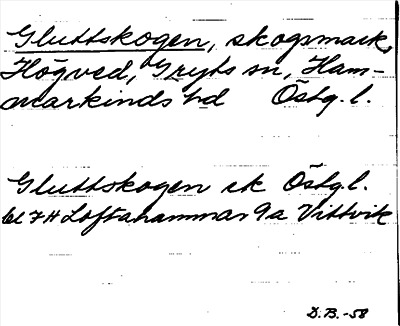 Gluttskogen, skogsmark,
Högved, Gryts sn, Ham-
markinds hd Östg.l.
Gluttskogen ek Östg.l.
bl 7H Loftahammar 9a Vittvik
D.B.-58